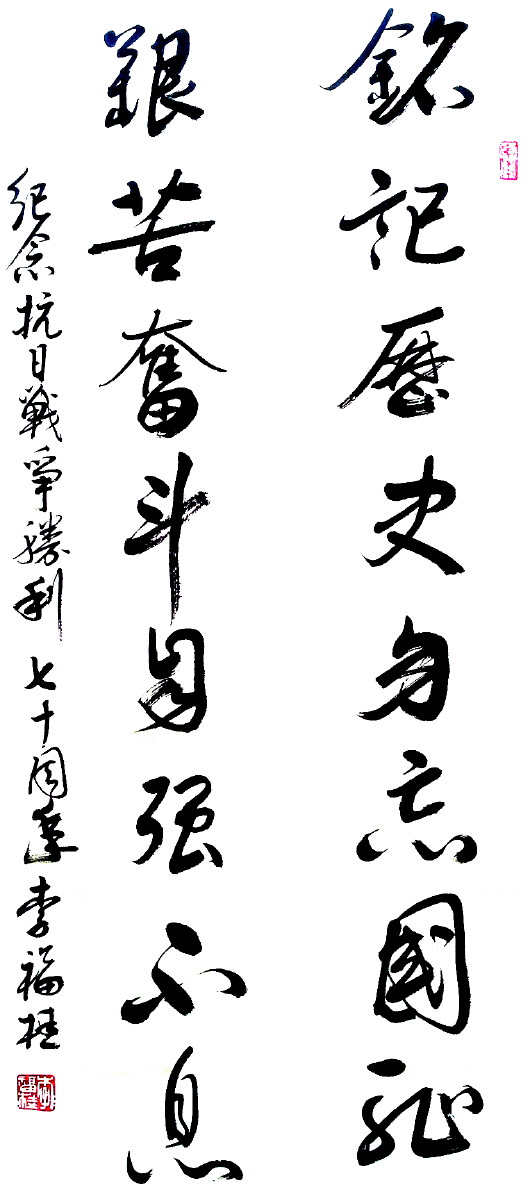 銘記歷史勿忘國恥
艱苦奮斗自强不息
紀念抗日戰爭勝利七十周年 李福桂